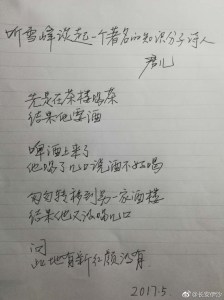 听雪峰谈起一个著名的知识分子诗人
君儿
先是在茶楼喝茶
结果他要酒
啤酒上来了
他喝了几口说酒不好喝
匆匆转移到另一家酒楼
结果他又没喝几口
问
此地有新红颜没有
2017.5
@长安伊沙